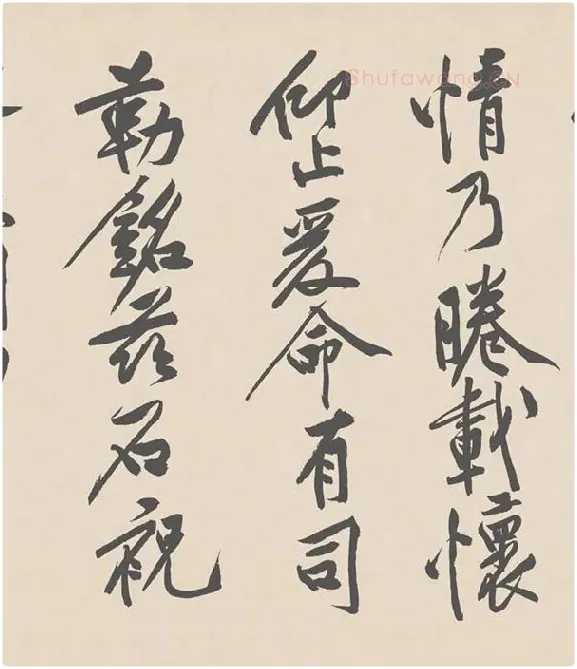 情乃睠載懷
仰止爰命有司
勒銘茲石祝
Shufawang.CN